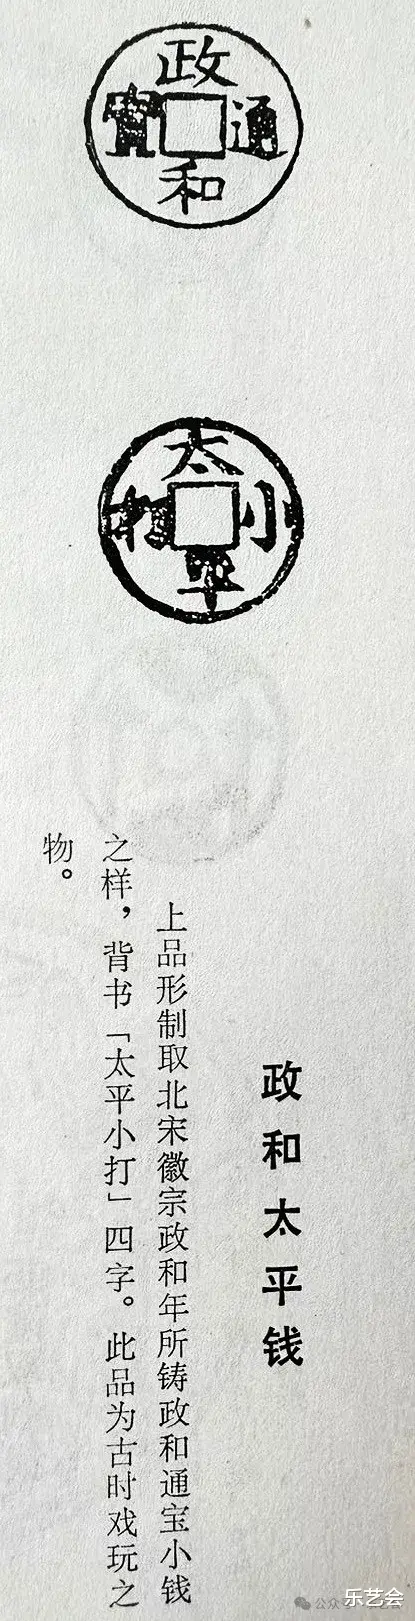 政和通寳
太平小打
政和太平钱
上品形制取北宋徽宗政和年所铸政和通宝小钱
之样，背书「太平小打」四字。此品为古时戏玩之
物。
公众号
乐艺会